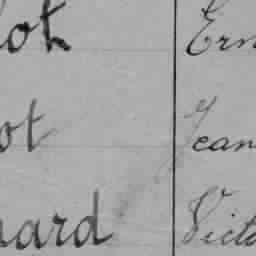 ot Ern
ot Jean
ard Victo